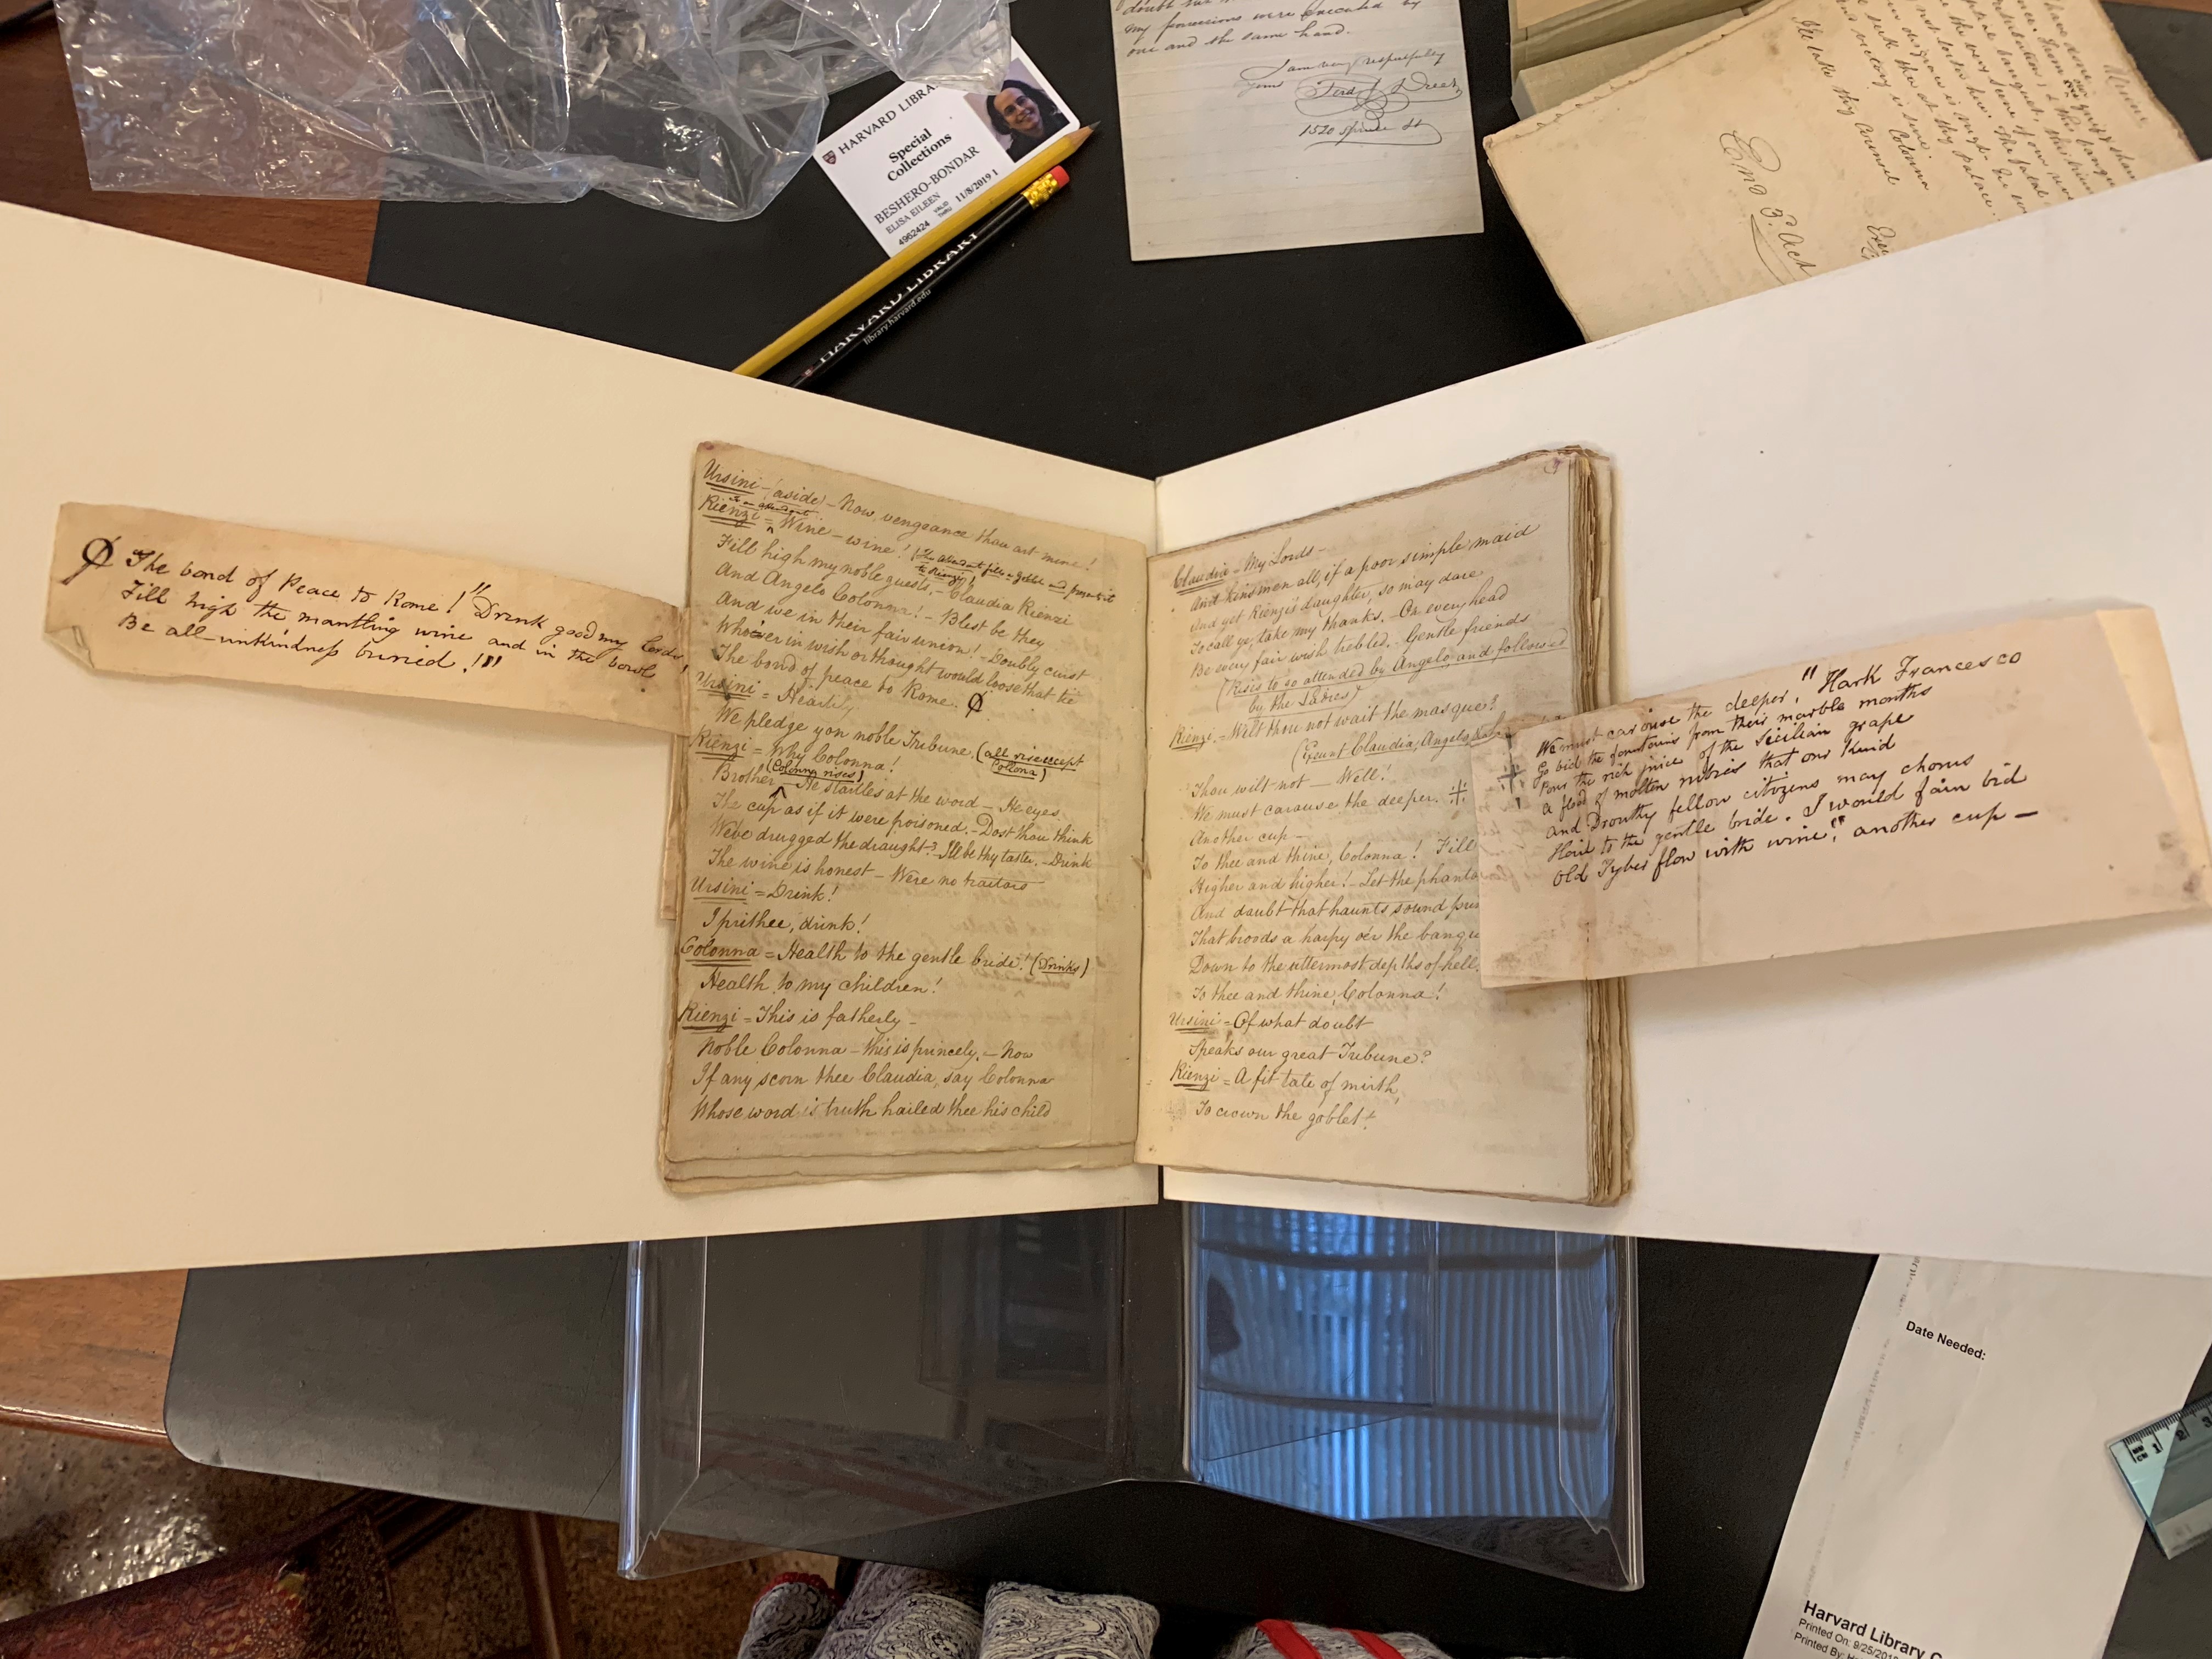 HARVARD LIBRA
Special
Collections
BESHERO-BONDAR
ELISA EILEEN
4962424 VALID THRU 11/8/2019 1
HARVARD LIBRARY
library.harvard.edu
my possessions were executed by
one and the same hand.
I am very respectfully
Yours Ferd J Dreer
1520 Spruce St
I'll take thy Counsel
End 3d. Act
Ø The bond of Peace to Rome! "Drink good my Lords,
Fill high the mantling wine and in the bowl
Be all unkindness buried!"
Ursini - (aside) - Now, vengeance thou art mine!
Rienzi = Wine - wine!
Fill high my noble guests. - Claudia Rienzi
And Angelo Colonna! - Blest be they
And we in their fair union! - Doubly curst
Whoever in wish or thought would loose that tie
The bond of peace to Rome. Ø
Ursini = Heartily
We pledge you noble Tribune (all rise except
Colonna)
Rienzi = Why Colonna!
(Colonna rises)
Brother - He startles at the word - He eyes
The cup as if it were poisoned. - Dost thou think
We've drugged the draught? - I'll be thy taster. - Drink
The wine is honest - Were no traitors
Ursini = Drink!
I prithee, drink!
Colonna = Health to the gentle bride! (Drinks)
Health to my children!
Rienzi = This is fatherly -
Noble Colonna - this is princely. - Now
If any scorn thee Claudia, say Colonna
Whose word is truth hailed thee his child
Claudia = My Lords -
And kinsmen all, if a poor simple maid
And yet Rienzi's daughter, so may dare
To call ye, take my thanks. - On every head
Be every fair wish trebled. - Gentle friends
(Rises to go attended by Angelo, and followed
by the Ladies)
Rienzi. - Wilt thou not wait the masque?
(Exeunt Claudia, Angelo,
Thou wilt not - Well!
We must carouse the deeper.
Another cup -
To thee and thine, Colonna! Fill
Higher and higher! - Let the
And doubt that haunts sound
That broods a harpy o'er the
Down to the uttermost depths of hell.
To thee and thine, Colonna!
Ursini = Of what doubt
Speaks our great Tribune?
Rienzi = A fit tale of mirth,
To crown the goblet!
We must carouse the deeper, "Hark Francesco
Go bid the fountains from their marble mouths
Pour the rich juice of the Sicilian grape
A flood of molten rubies that our Kind
and Drouthy fellow citizens may chorus
Hail to the gentle bride. I would fain bid
Old Tyber flow with wine", another cup -
Date Needed:
Harvard Library
Printed On: 9/25/201
Printed By: